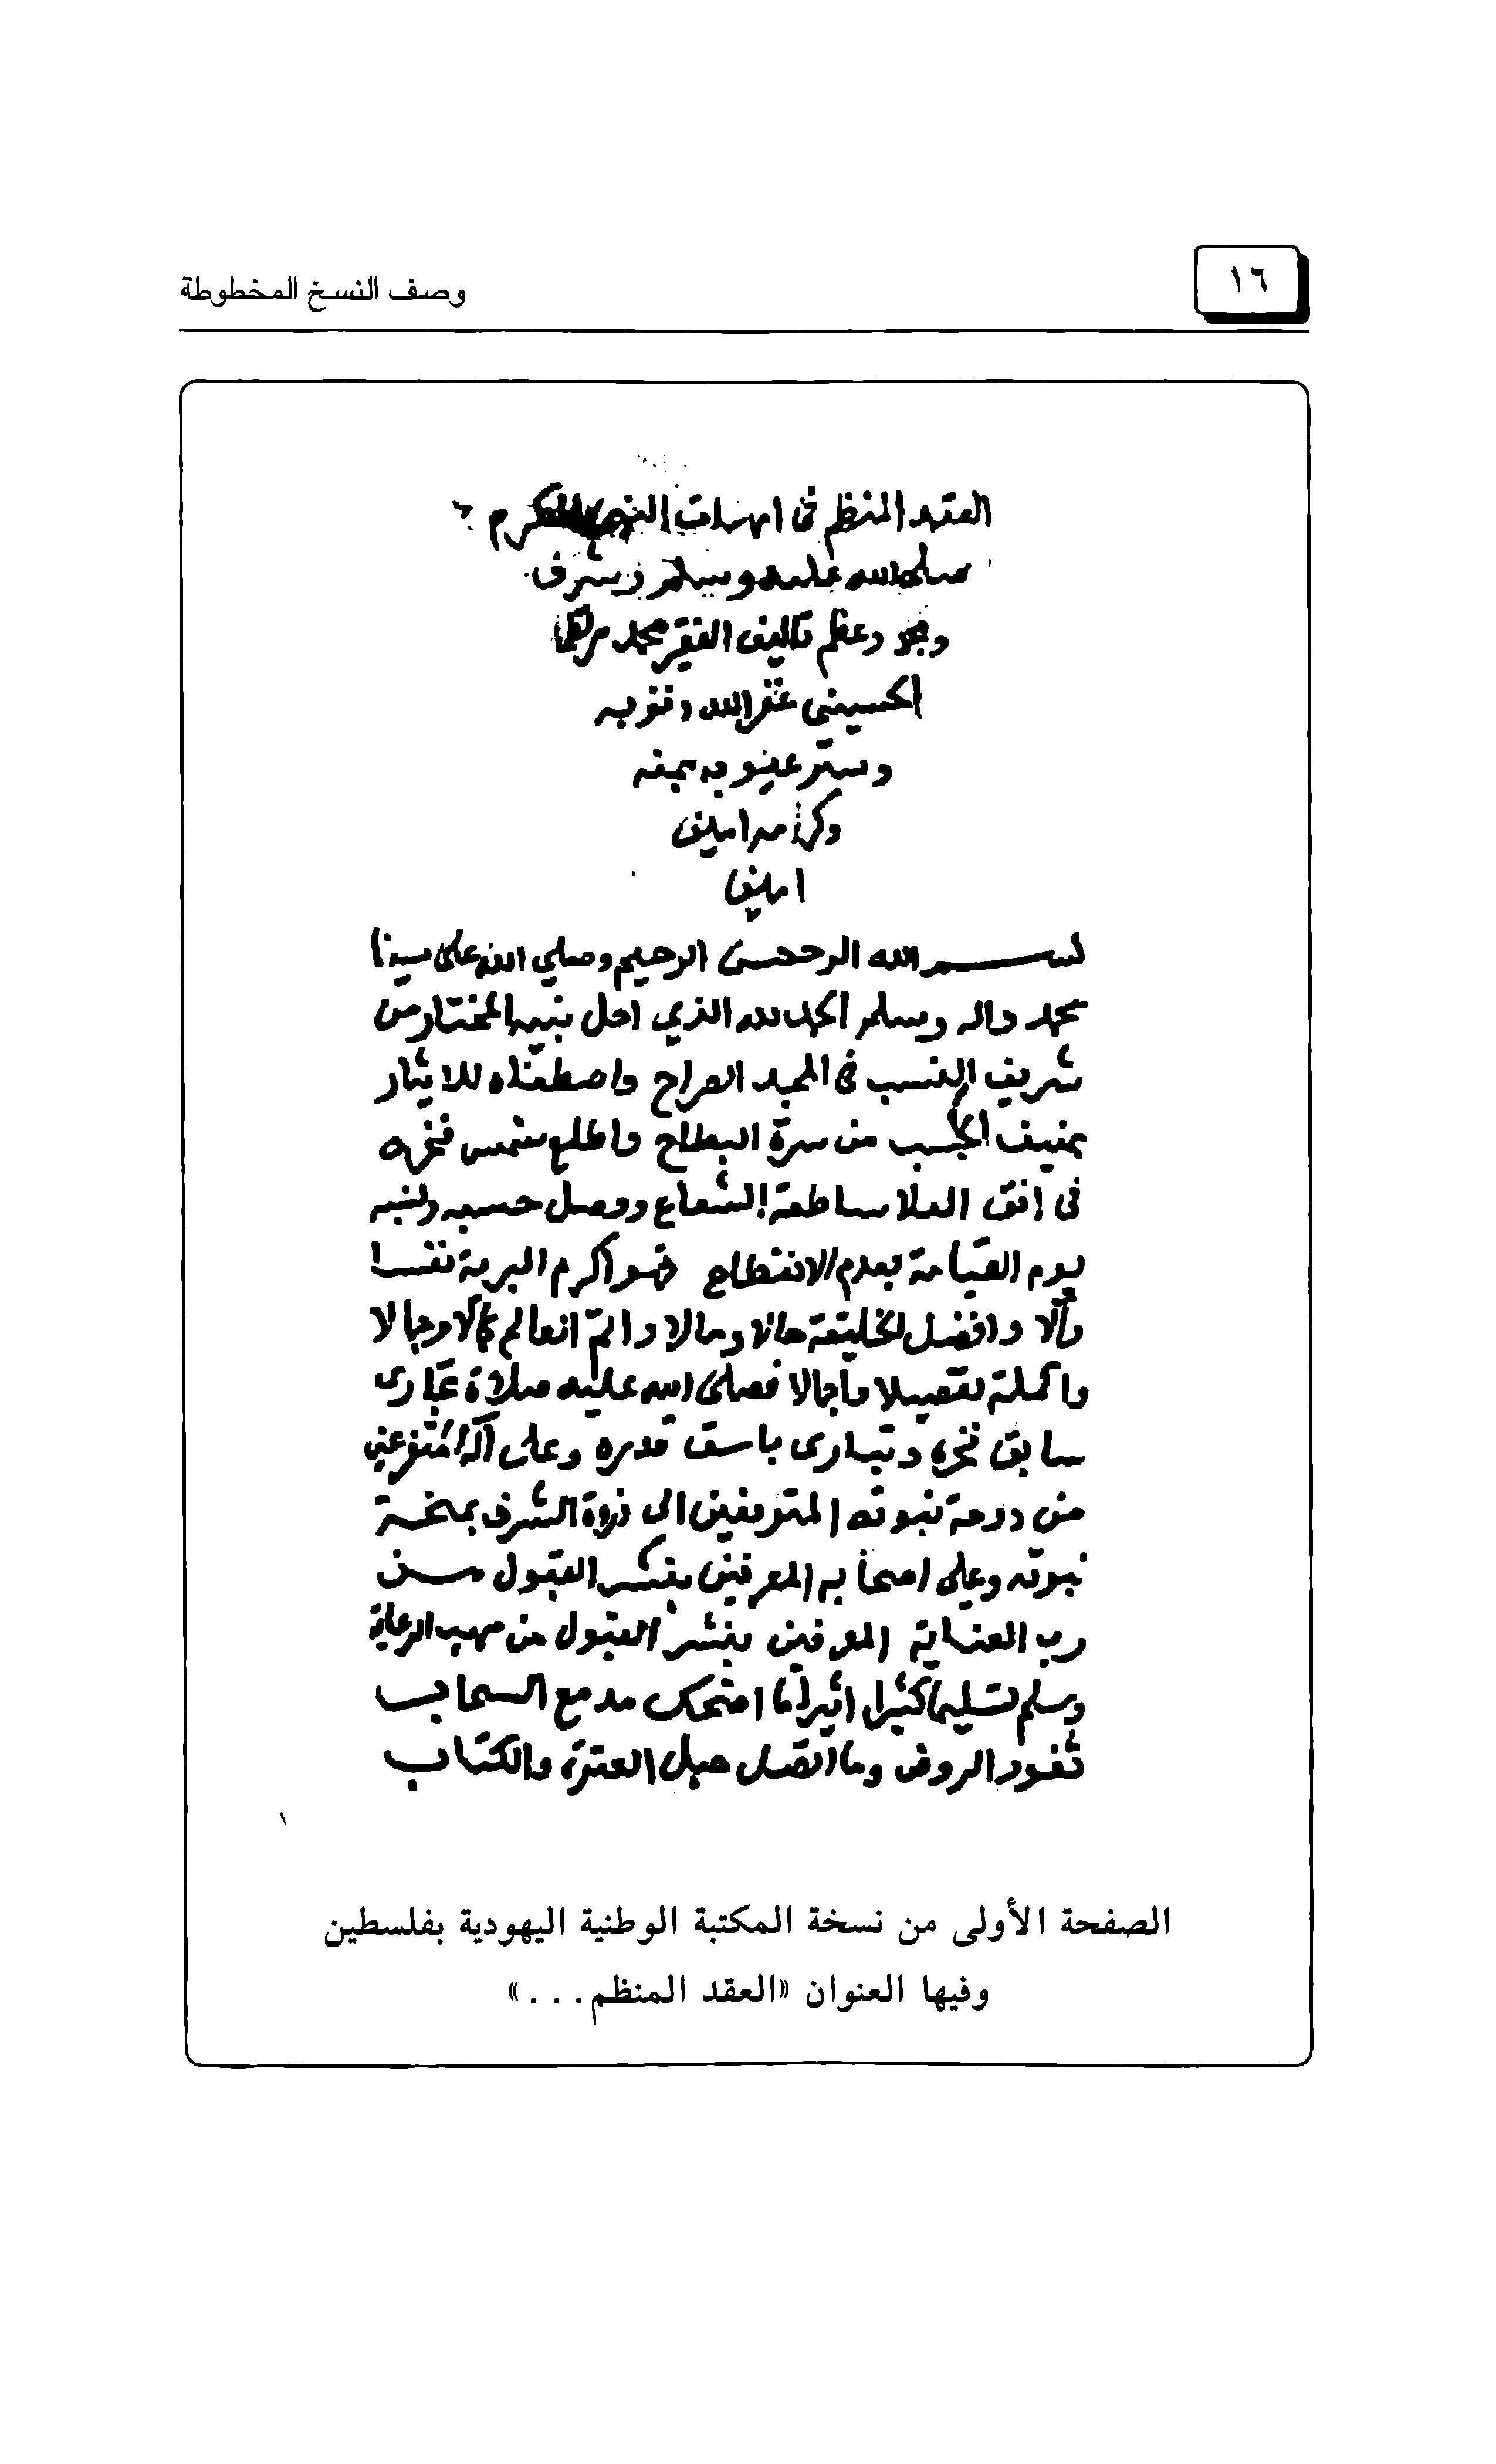 ١٦
وصف النسخ المخطوطة
العقد المنظم في امهات النبي المكرم
صلى الله عليه وسلم وشرف
ومجد وعظم تاليف الفقير محمد مرتضى
الحسيني غفر الله ذنوبه
وستر عيوبه بمنه
وكرمه امين
امين
بسم الله الرحمن الرحيم وصلي الله على سيدنا
محمد واله وسلم الحمد لله الذي احل نبيه المختار من
شريف النسب في المجد الصراح واصطفاه للايثار
بمنيف الحسب من سرة البطاح واطلع شمس فخره
في افق العلا ساطعة الشعاع ووصل حسبه ونسبه
يوم القيامة بعدم الانقطاع فهو اكرم البرية نفسا
وآلا وافضل الخليقة حالا ومالا واتم العالم كمالا وجمالا
واكمله تفصيلا واجمالا فصلى الله عليه صلاة تجارى
سابق فخره وتبارى باسق قدره وعلى آله المتفرعين
من دوحة نبوته المترقين الى ذروة الشرف
نبوته وعلى اصحابه القبول من
رب العناية بنشر القبول من مهب الرعاية
وسلم تسليما كثيرا اثيرا ما اضحك مدمع السحاب
ثغور الروض وما اتصل حبل العترة والكتاب
الصفحة الأولى من نسخة المكتبة الوطنية اليهودية بفلسطين
وفيها العنوان «العقد المنظم...»